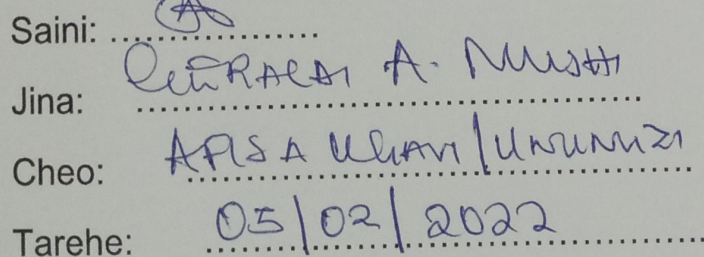 Saini: ....................
Jina: A. Mushi
Cheo: AFISA UGAVI/UNUNUZI
Tarehe: 05/02/2022